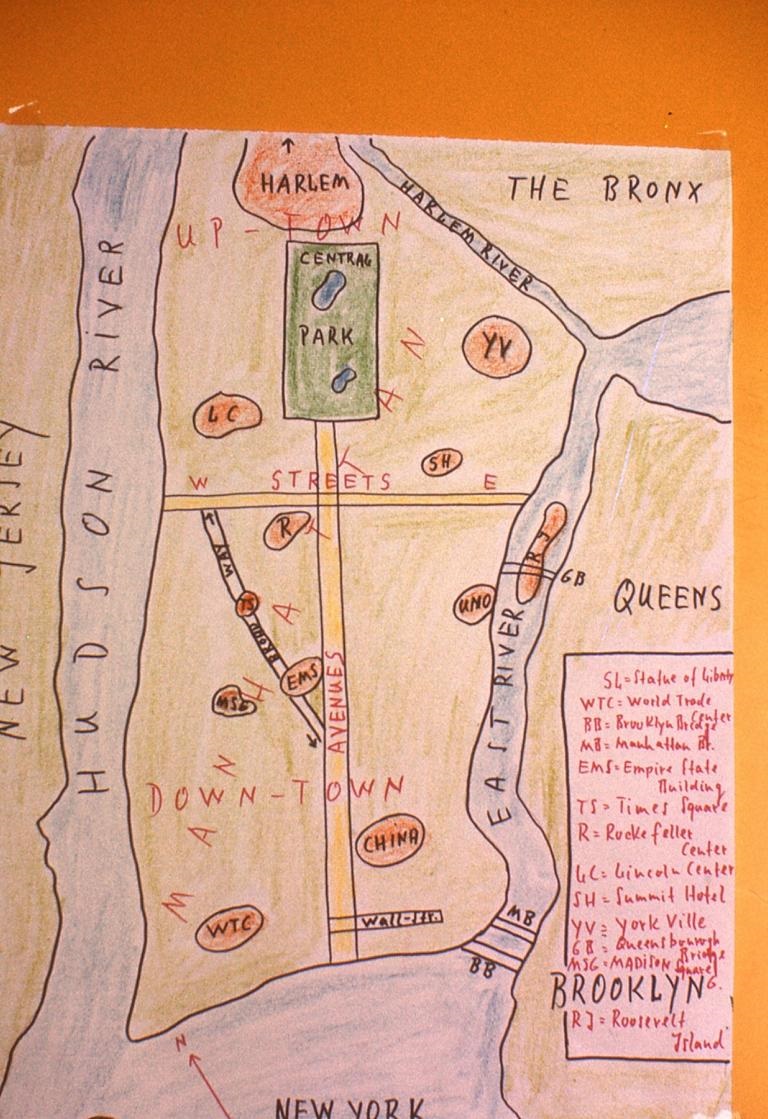 HARLEM
UP-TOWN
THE BRONX
HARLEM RIVER
CENTRAL
PARK
YV
LC
SH
W STREETS E
HUDSON RIVER
NEW JERSEY
MANHATTAN
R
BROADWAY
TS
EMS
MSG
AVENUES
UNO
RJ
GB
QUEENS
EAST RIVER
DOWN-TOWN
CHINA
WTC
Wall-Str.
MB
BB
SL=Statue of Liberty
WTC=World Trade
Center
BB=Brooklyn Bridge
MB=Manhattan Br.
EMS=Empire State
Building
TS=Times Square
R=Rockefeller
Center
LC=Lincoln Center
SH=Summit Hotel
YV=York Ville
GB=Queensborough
Bridge
MSG=MADISON Square
G.
BROOKLYN
RJ=Roosevelt
Island
N
NEW YORK